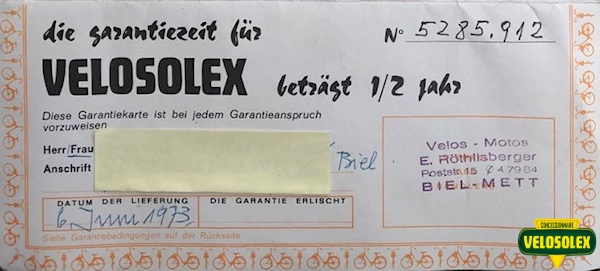 die garantiezeit für
Nº 5285.912
VELOSOLEX beträgt 1/2 jahr
Diese Garantiekarte ist bei jedem Garantieanspruch
vorzuweisen
Herr/Frau
Anschrift
Biel
Velos - Motos
E. Röthlisberger
Poststr. 15 Ø 47984
BIEL-METT
DATUM DER LIEFERUNG
DIE GARANTIE ERLISCHT
6. Juni 1973
Siehe Garantiebedingungen auf der Rückseite
CONCESSIONNAIRE
VELOSOLEX